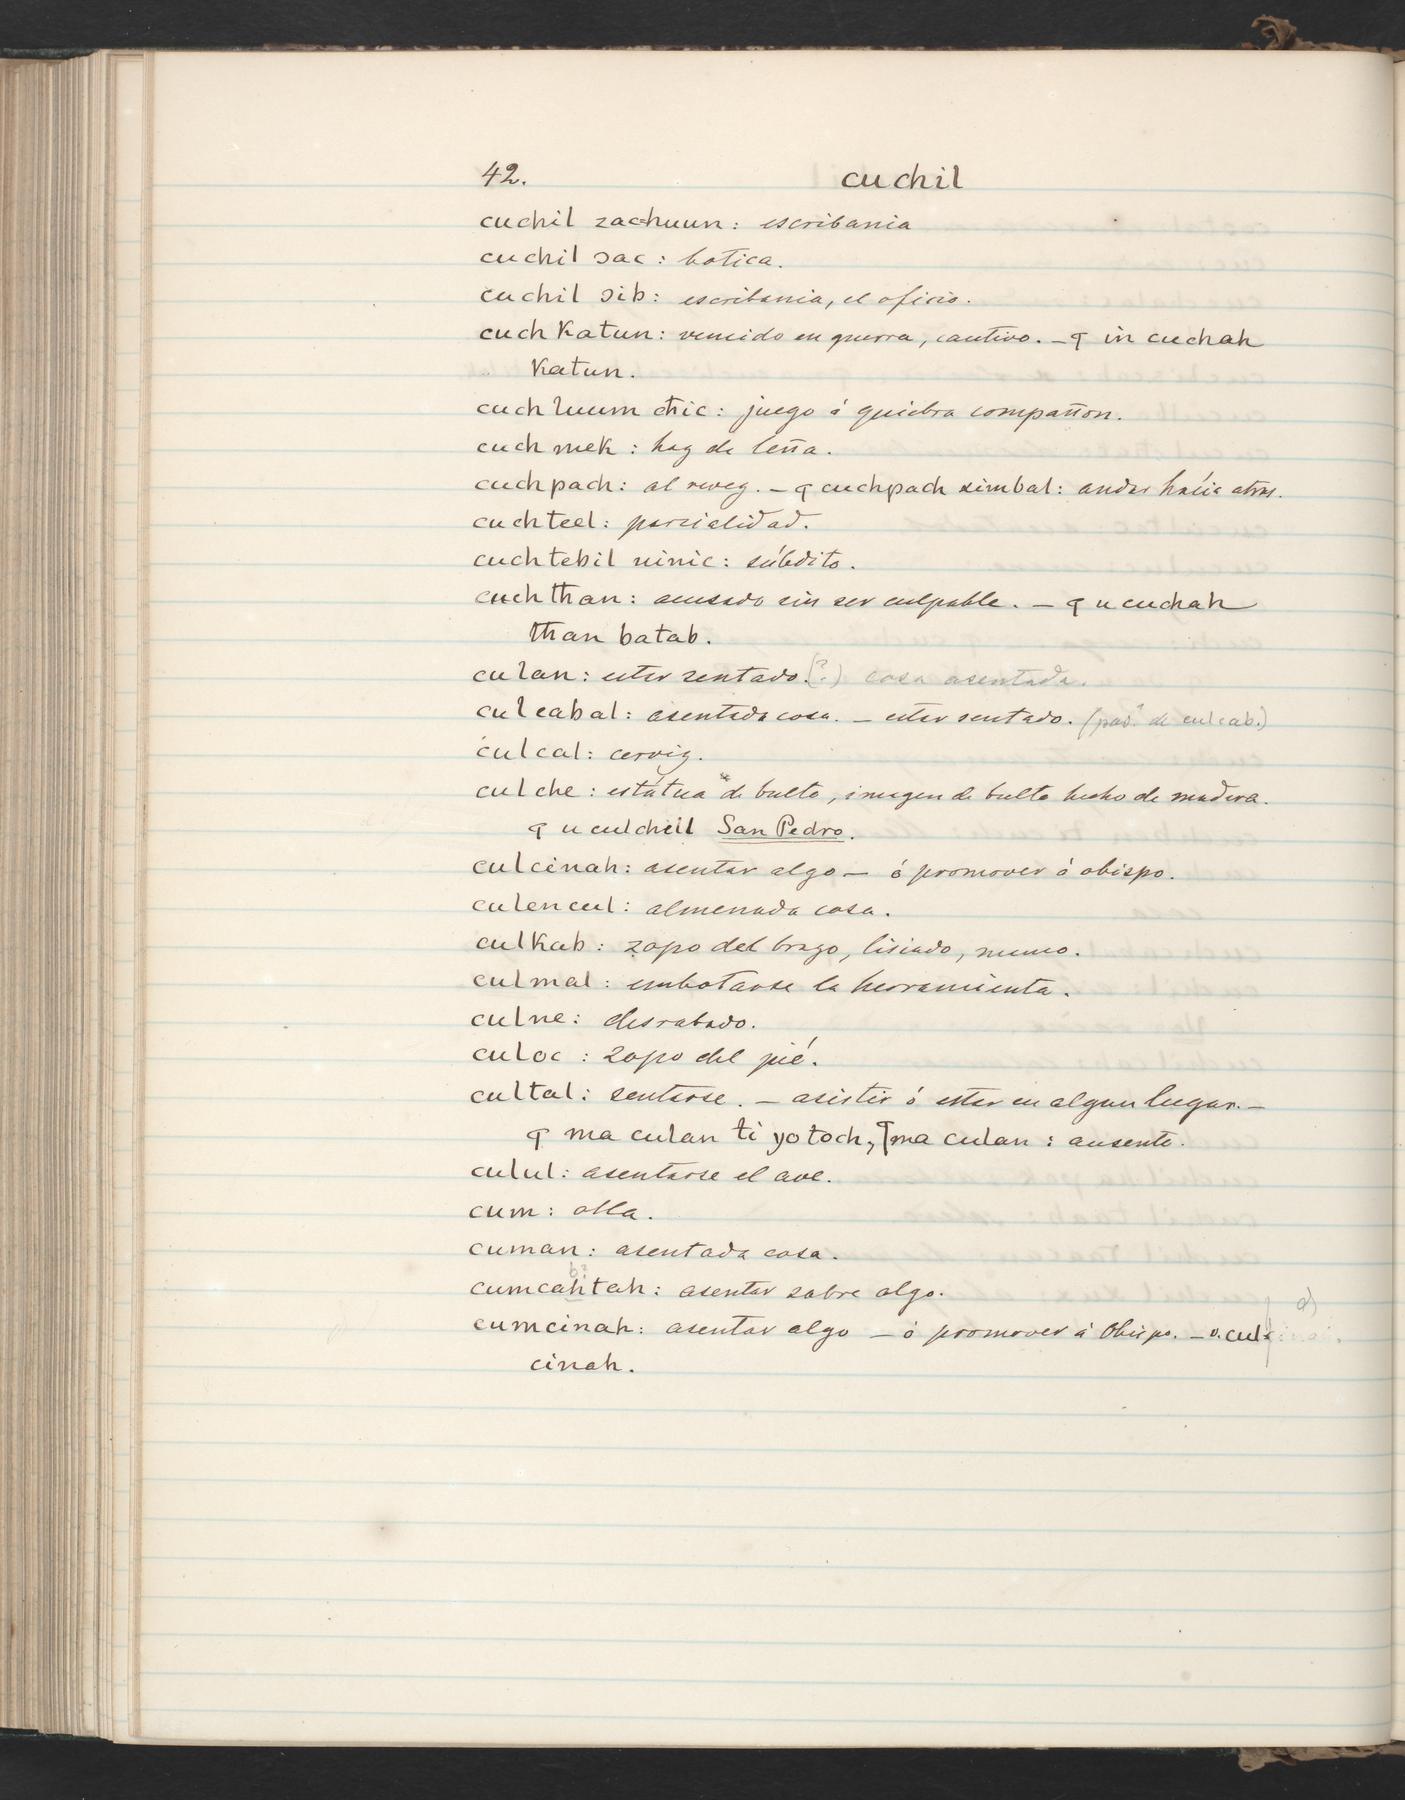 42. cuchil
cuchil zachuun: escribania
cuchil ɔac: botica.
cuchil ɔib: escribania, el oficio.
cuch katun: vencido en guerra, cautivo. — ꟼ in cuchah
katun.
cuch luum chic: juego á quiebra compañon.
cuch mek: haz de leña.
cuchpach: al revez. — ꟼ cuchpach ximbal: andar hácia atras.
cuchteel: parcialidad.
cuchtebil uinic: súbdito.
cuch than: acusado sin ser culpable. — ꟼ u cuchah
than batab.
culan: estar sentado. (?) cosa asentada.
culcabal: asentada cosa. — estar sentado. (pas. de culcab.)
culcal: cerviz.
culche: estátua de bulto, imagen de bulto hecho de madera.
ꟼ u culcheil San Pedro.
culcinah: asentar algo — ó promover á obispo.
culencul: almenada cosa.
culkab: zopo del brazo, lisiado, manco.
culmal: embotarse la herramienta.
culne: desrabado.
culoc: zopo del pié.
cultal: sentarse. — asistir ó estar en algun lugar. —
ꟼ ma culan ti yotoch, ꟼ ma culan: ausente.
culul: asentarse el ave.
cum: olla.
cuman: asentada cosa.
cumcahtah: asentar sobre algo.
cumcinah: asentar algo — ó promover á Obispo. — v. cul-
cinah.